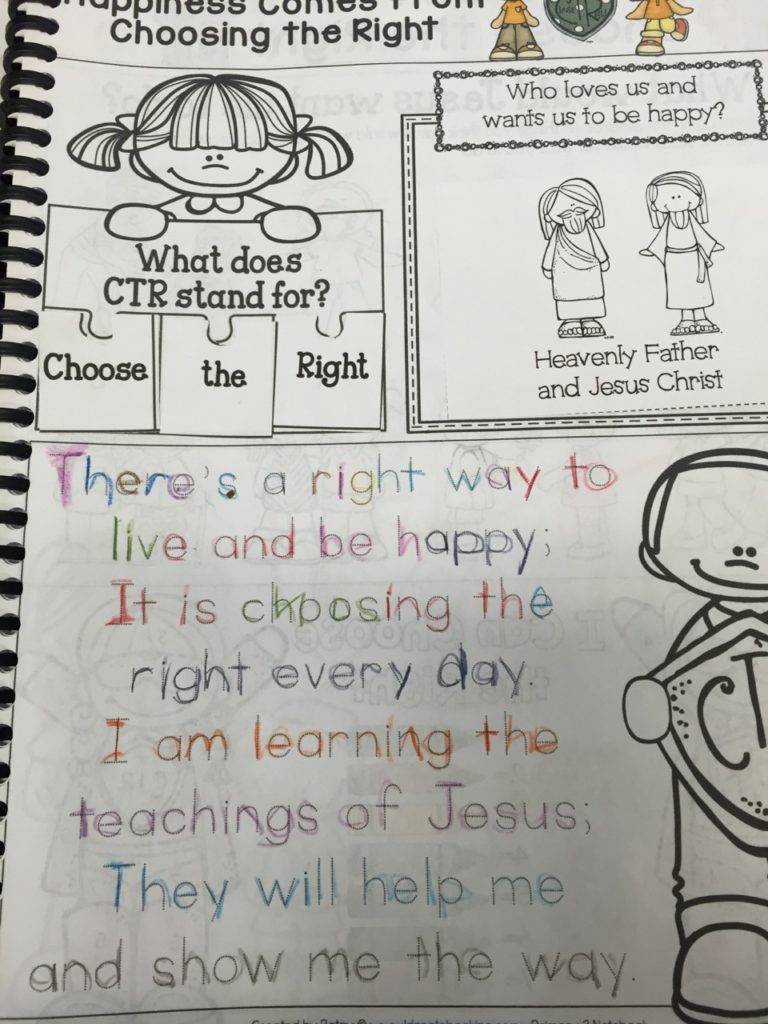 Happiness Comes From
Choosing the Right
What does
CTR stand for?
Choose
the
Right
Who loves us and
wants us to be happy?
Heavenly Father
and Jesus Christ
There's a right way to
live and be happy;
It is choosing the
right every day.
I am learning the
teachings of Jesus;
They will help me
and show me the way.
CT